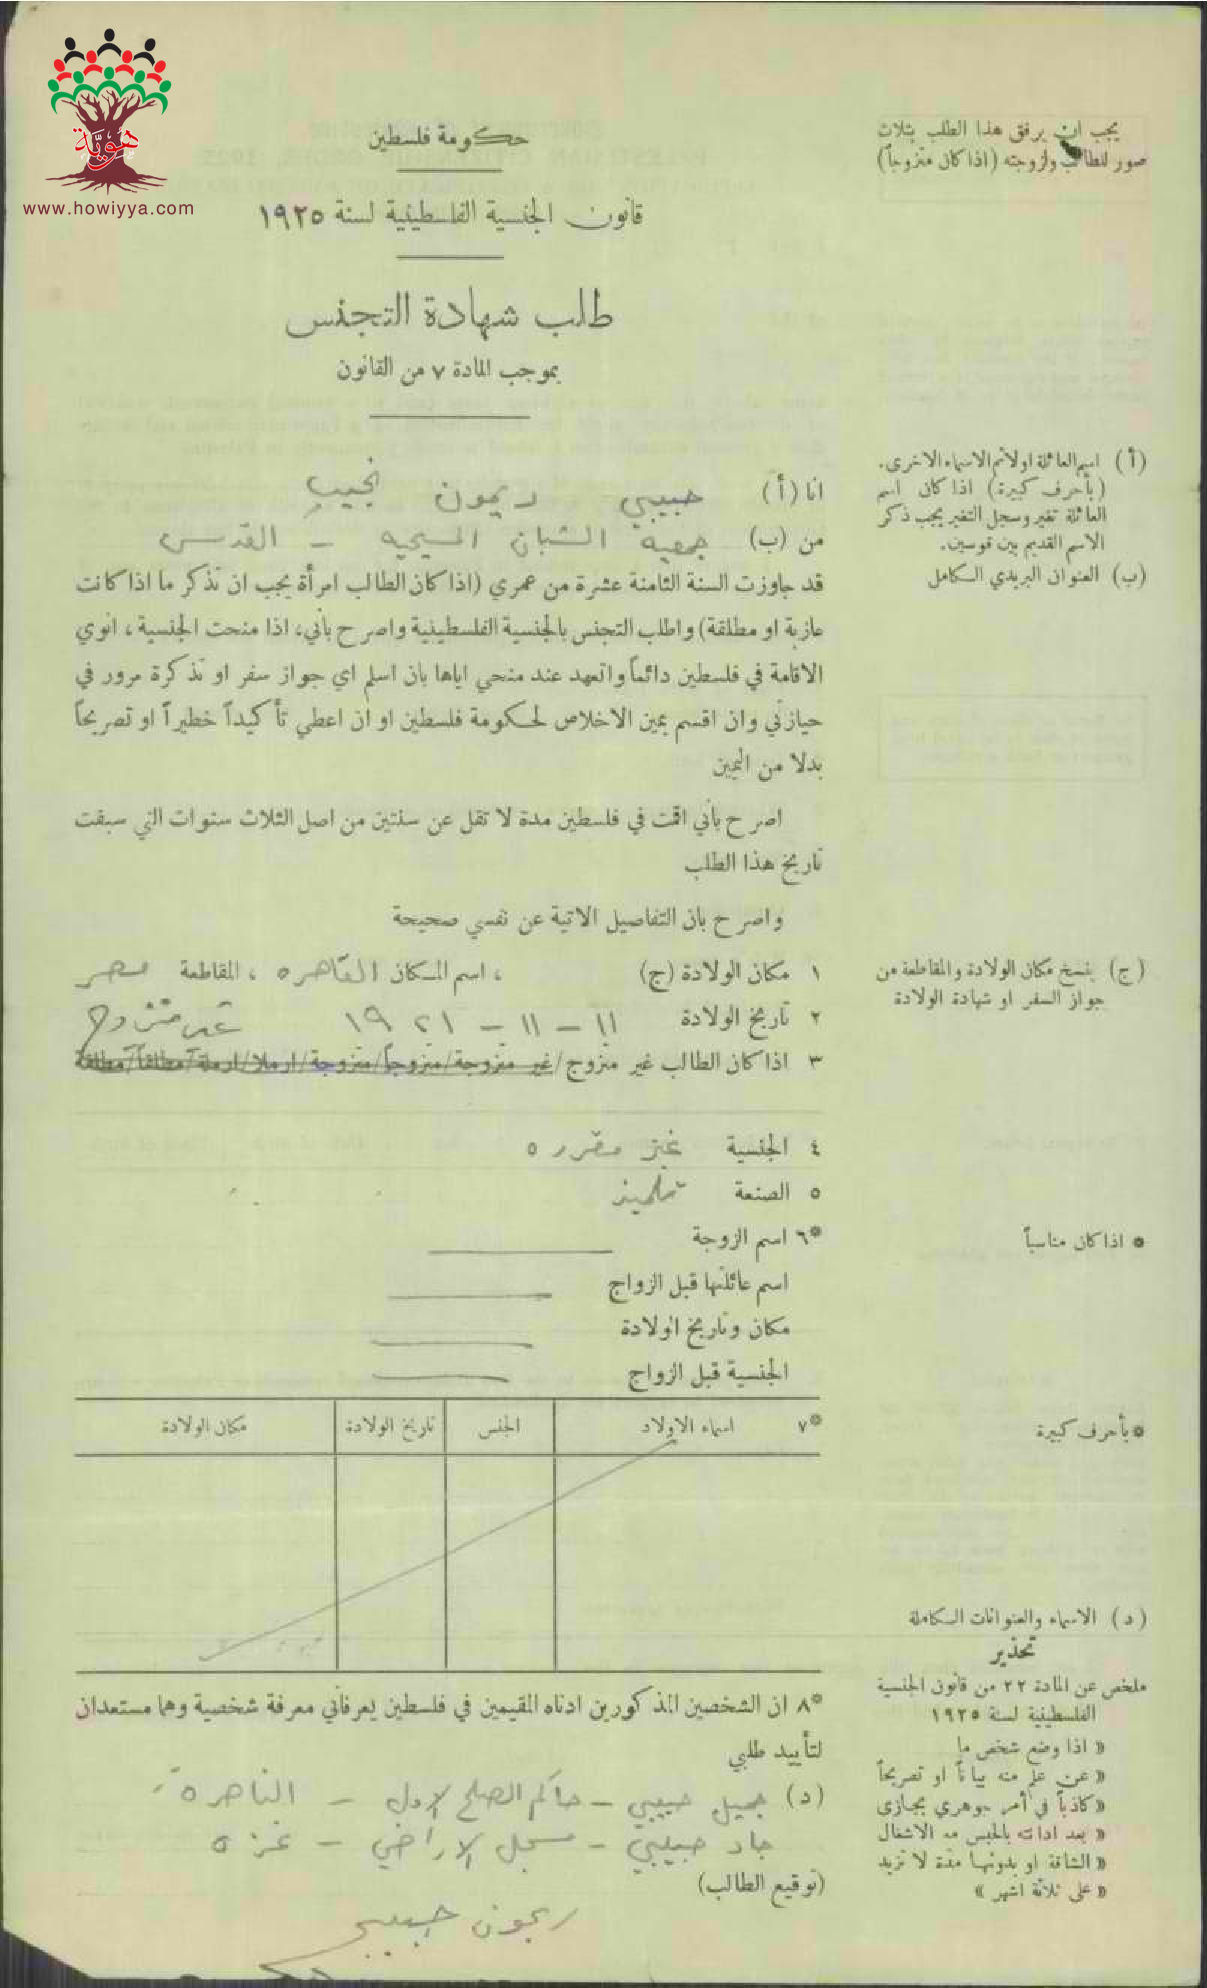 هوية
www.howiyya.com
حكومة فلسطين
قانون الجنسية الفلسطينية لسنة ١٩٢٥
طلب شهادة التجنس
بموجب المادة ٧ من القانون
يجب ان يرفق هذا الطلب بثلاث
صور للطالب ولزوجته (اذا كان متزوجاً)
(أ) اسم العائلة اولا ثم الاسماء الاخرى.
(بأحرف كبيرة) اذا كان اسم
العائلة تغير وسجل التغير يجب ذكر
الاسم القديم بين قوسين.
(ب) العنوان البريدي الكامل
انا (أ) حبيبي ريمون نجيب
من (ب) جمعية الشبان المسيحيه - القدس
قد جاوزت السنة الثامنة عشرة من عمري (اذا كان الطالب امرأة يجب ان تذكر ما اذا كانت
عازبة او مطلقة) واطلب التجنس بالجنسية الفلسطينية واصرح بأني، اذا منحت الجنسية، انوي
الاقامة في فلسطين دائماً واتعهد عند منحي اياها بان اسلم اي جواز سفر او تذكرة مرور في
حيازتي وان اقسم يمين الاخلاص لحكومة فلسطين او ان اعطي تأكيداً خطيراً او تصريحاً
بدلا من اليمين
اصرح بأني اقمت في فلسطين مدة لا تقل عن سنتين من اصل الثلاث سنوات التي سبقت
تاريخ هذا الطلب
واصرح بان التفاصيل الاتية عن نفسي صحيحة
(ج) ينسخ مكان الولادة والمقاطعة من
جواز السفر او شهادة الولادة
١ مكان الولادة (ج) ، اسم المكان القاهره ، المقاطعة مصر
٢ تاريخ الولادة ١١ - ١١ - ١٩٢١ غير متزوج
٣ اذا كان الطالب غير متزوج/غير متزوجة/متزوجاً/متزوجة/ارملا/ارملة/مطلقاً/مطلقة
٤ الجنسية غير مقرره
٥ الصنعة تلميذ
* اذا كان مناسباً
*٦ اسم الزوجة
اسم عائلتها قبل الزواج
مكان وتاريخ الولادة
الجنسية قبل الزواج
* بأحرف كبيرة
*٧ اسماء الاولاد الجنس تاريخ الولادة مكان الولادة
(د) الاسماء والعنوانات الكاملة
تحذير
ملخص عن المادة ٢٢ من قانون الجنسية
الفلسطينية لسنة ١٩٢٥
« اذا وضع شخص ما
« عن علم منه بياناً او تصريحاً
« كاذباً في أمر جوهري يجازى
« بعد ادانته بالحبس مع الاشغال
« الشاقة او بدونها مدة لا تزيد
« على ثلاثة اشهر »
*٨ ان الشخصين المذكورين ادناه المقيمين في فلسطين يعرفاني معرفة شخصية وهما مستعدان
لتأييد طلبي
(د) جميل حبيبي - حاكم الصلح الاول - الناصرة
جاد حبيبي - مسجل الاراضي - غزه
(توقيع الطالب)
ريمون حبيبي